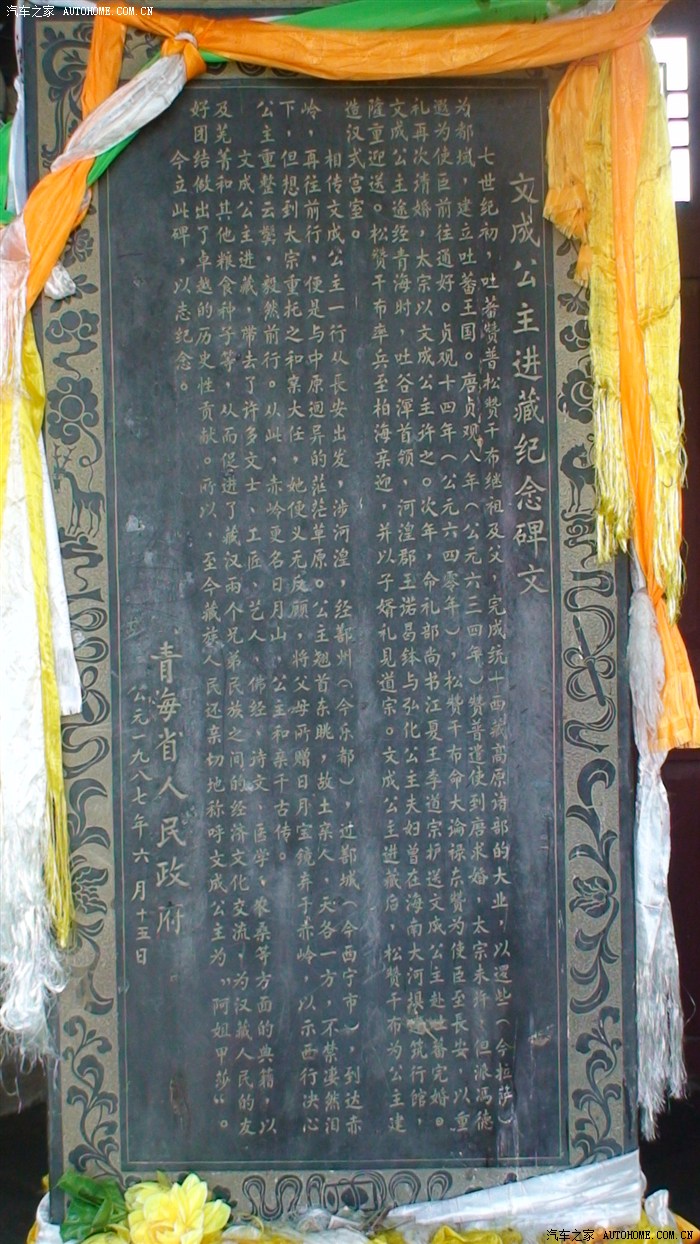 汽车之家 AUTOHOME.COM.CN
文成公主进藏纪念碑文
七世纪初，吐蕃赞普松赞干布继祖及父，完成统一西藏高原诸部的大业，以逻些（今拉萨）
为都城，建立吐蕃王国。唐贞观八年（公元六三四年）赞普遣使到唐求婚，太宗未许，但派冯德
遐为使臣前往通好。贞观十四年（公元六四零年），松赞干布命大论禄东赞为使臣至长安，以重
礼再次请婚，太宗以文成公主许之。次年，命礼部尚书江夏王李道宗护送文成公主赴吐蕃完婚。
文成公主途经青海时，吐谷浑首领，河湟郡王诺曷钵与弘化公主夫妇曾在海南大河坝筑行馆，
隆重迎送。松赞干布率兵至柏海亲迎，并以子婿礼见道宗。文成公主进藏后，松赞干布为公主建
造汉式宫室。
相传文成公主一行从长安出发，涉河湟，经鄯州（今乐都），近鄯城（今西宁市），到达赤
岭，再往前行，便是与中原迥异的茫茫草原。公主翘首东眺，故土亲人，天各一方，不禁凄然泪
下，但想到太宗重托之和亲大任，她便义无反顾，将父母所赠日月宝镜弃于赤岭，以示西行决心
公主重整云鬓，毅然前行。从此，赤岭更名日月山，公主和亲千古传。
文成公主进藏，带去了许多文士、工匠、艺人、佛经、诗文、医学、农桑等方面的典籍，以
及芜菁和其他粮食种子等，从而促进了藏汉两个兄弟民族之间的经济文化交流，为汉藏人民的友
好团结做出了卓越的历史性贡献。所以，至今藏族人民还亲切地称呼文成公主为“阿姐甲莎”。
今立此碑，以志纪念。
青海省人民政府
公元一九八七年六月十五日
汽车之家 AUTOHOME.COM.CN